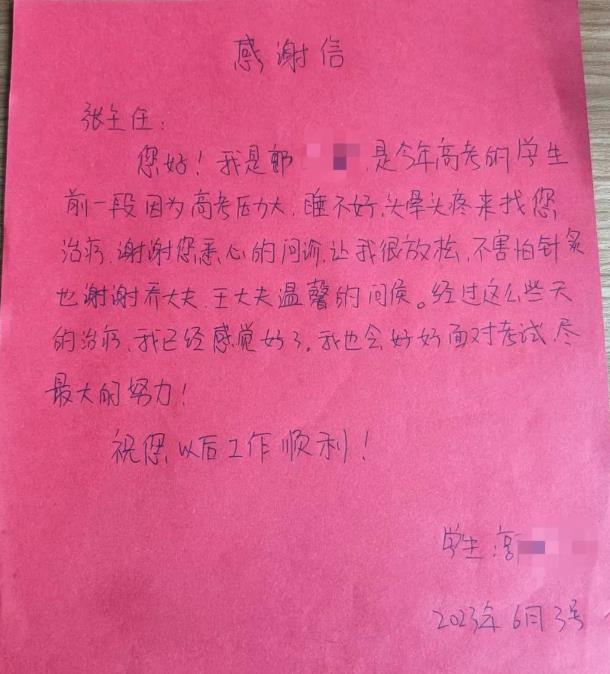 感谢信
张主任:
您好!我是郭 是今年高考的学生
前一段因为高考压力大,睡不好,头晕头疼来找您
治疗,谢谢您悉心的问诊,让我很放松,不害怕针灸
也谢谢乔大夫,王大夫温馨的问侯。经过这么些天
的治疗,我已经感觉好了,我也会好好面对考试,尽
最大的努力!
祝您以后工作顺利!
学生:
2023年6月3号